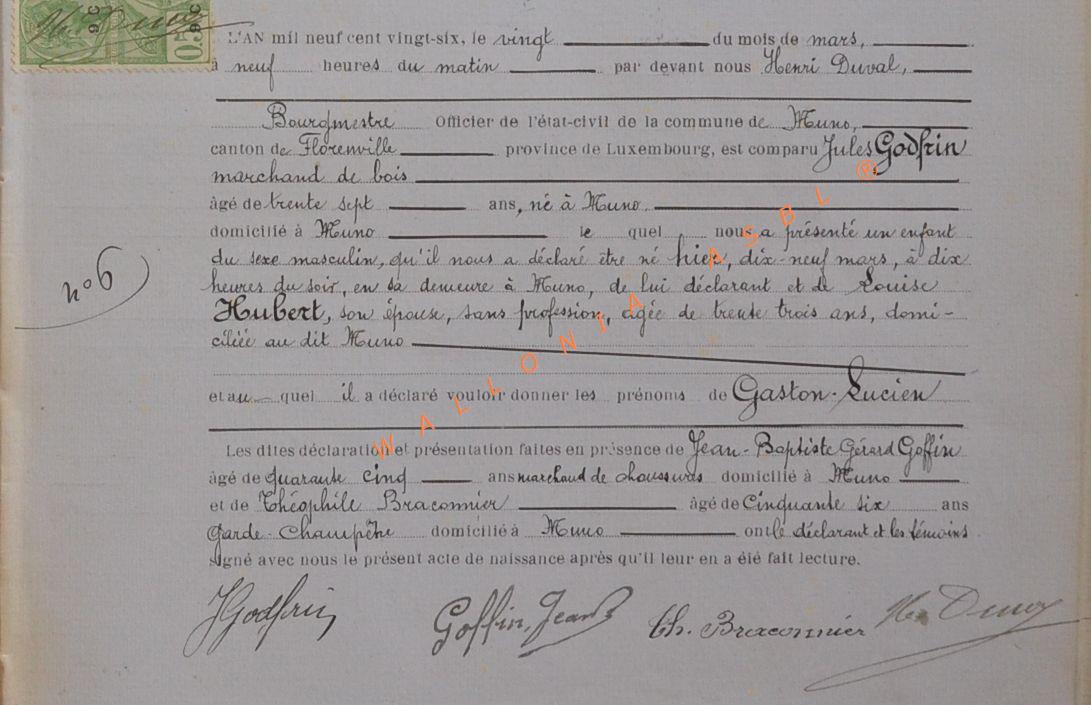 L'AN mil neuf cent vingt-six, le vingt du mois de mars,
à neuf heures du matin par devant nous Henri Duval,
Bourgmestre Officier de l'état-civil de la commune de Muno,
canton de Florenville province de Luxembourg, est comparu Jules Godfrin
marchand de bois
âgé de trente sept ans, né à Muno.
domicilié à Muno le quel nous a présenté un enfant
du sexe masculin, qu'il nous a déclaré être né hier, dix-neuf mars, à dix
heures du soir, en sa demeure à Muno, de lui déclarant et de Louise
Hubert, son épouse, sans profession, âgée de trente trois ans, domi-
ciliée au dit Muno
et au quel il a déclaré vouloir donner les prénoms de Gaston-Lucien
Les dites déclaration et présentation faites en présence de Jean-Baptiste Gérard Goffin
âgé de quarante cinq ans marchand de chaussures domicilié à Muno
et de Théophile Braconnier âgé de Cinquante six ans
garde-Champêtre domicilié à Muno ont le déclarant et les témoins
signé avec nous le présent acte de naissance après qu'il leur en a été fait lecture.
nº6
JGodfrin Goffin, Jean B Th. Braconnier
WALLONIA ASBL ®